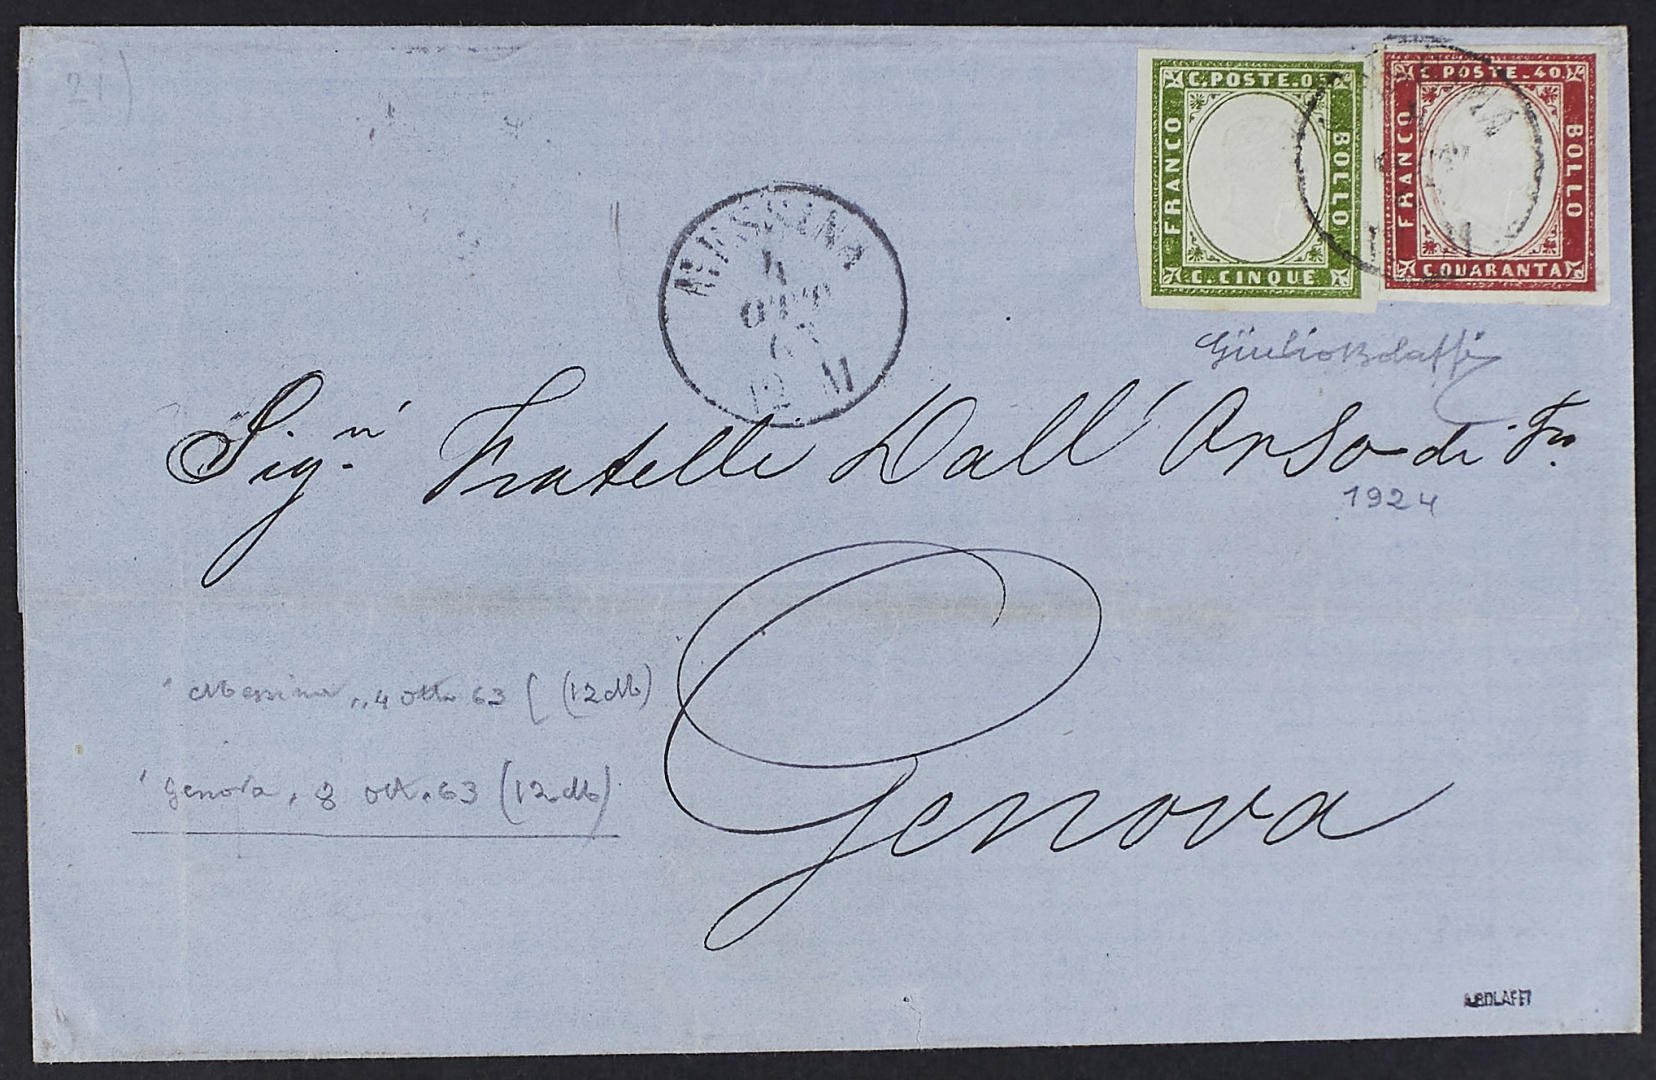 21)
C. POSTE. 05
FRANCO
BOLLO
C. CINQUE
C. POSTE. 40
FRANCO
BOLLO
C. QUARANTA
MESSINA
4
OTT
63
12 M
Giulio Bolaffi
Sig.ri Fratelli Dall'Orso di Fr.
1924
Genova
Messina, 4 ott 63 (12 M)
Genova, 8 ott. 63 (12 M)
A. BOLAFFI